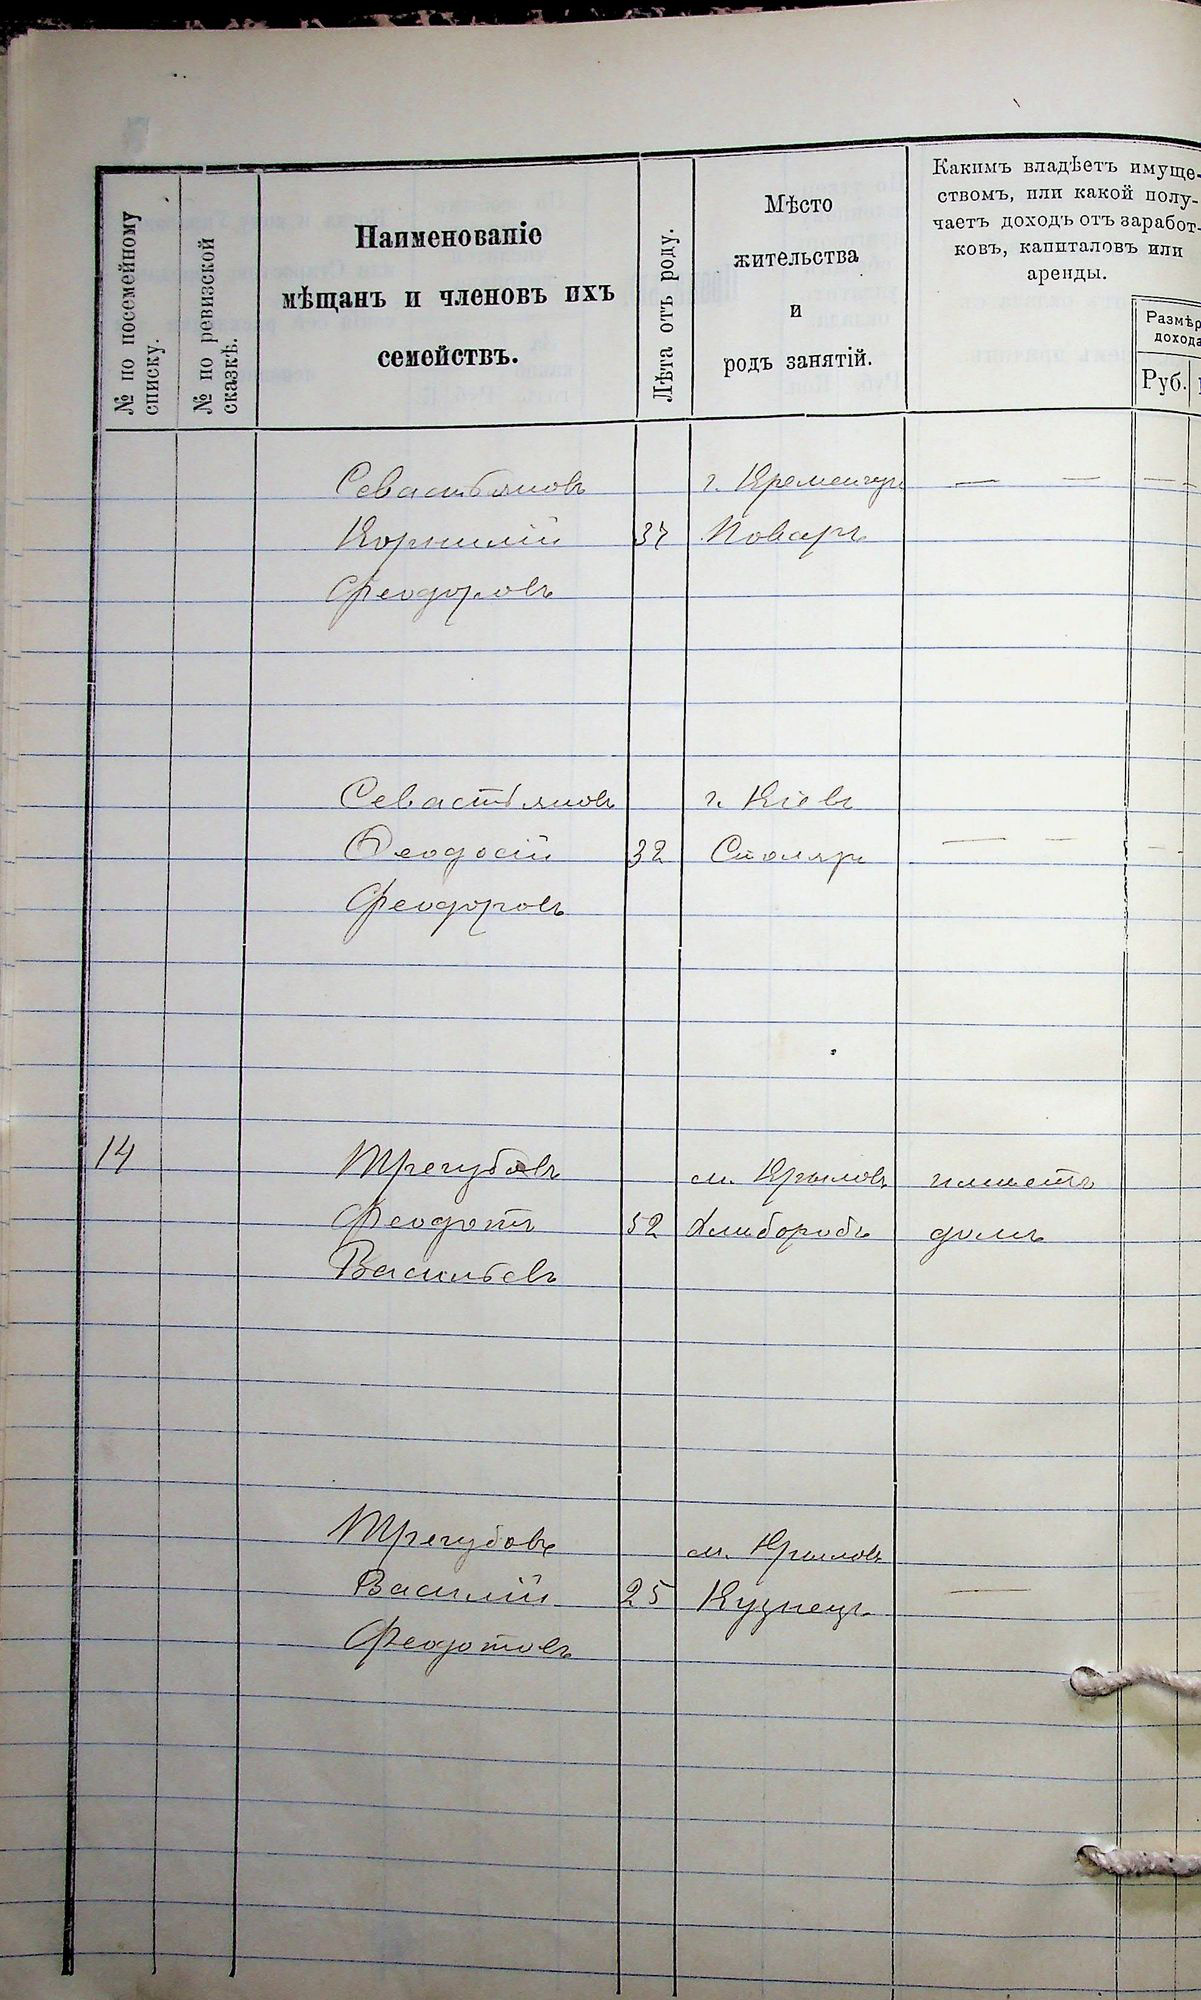 № по посемейному
списку.
№ по ревизской
сказкѣ.
Наименованіе
мѣщанъ и членовъ ихъ
семействъ.
Лѣта отъ роду.
Мѣсто
жительства
и
родъ занятій.
Какимъ владѣетъ имуще-
ствомъ, или какой полу-
чаетъ доходъ отъ заработ-
ковъ, капиталовъ или
аренды.
Размѣр
дохода
Руб.
Севастьяновъ г. Кременчугъ — — — -
Корнилій 37 Поваръ
Феодоровъ
Севастьяновъ г. Кіевъ
Феодосій 32 Столяръ — — — -
Феодоровъ
14 Трегубовъ м. Крыловъ имѣетъ
Феодотъ 52 Хлѣборобъ домъ
Васильевъ
Трегубовъ м. Крыловъ
Василій 25 Кузнецъ —
Феодотовъ